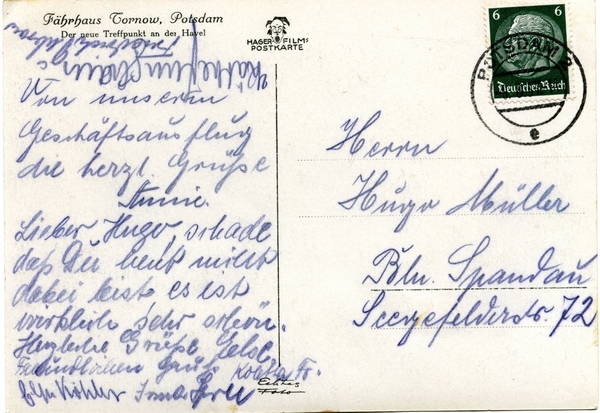 Fährhaus Tornow, Potsdam
Der neue Treffpunkt an der Havel
HAGER-FILMS
POSTKARTE
6 6
Deutsches Reich
POTSDAM
e
Von unserm
Geschäftsausflug
die herzl. Grüße
Annie.
Lieber Hugo, schade
daß Du heut nicht
dabei bist es ist
wirklich sehr schön.
Herzliche Grüße Ilse
Freundlichen Gruß
Köhler
Herrn
Hugo Müller
Bln. Spandau
Seegefelderstr. 72
Echtes
Foto